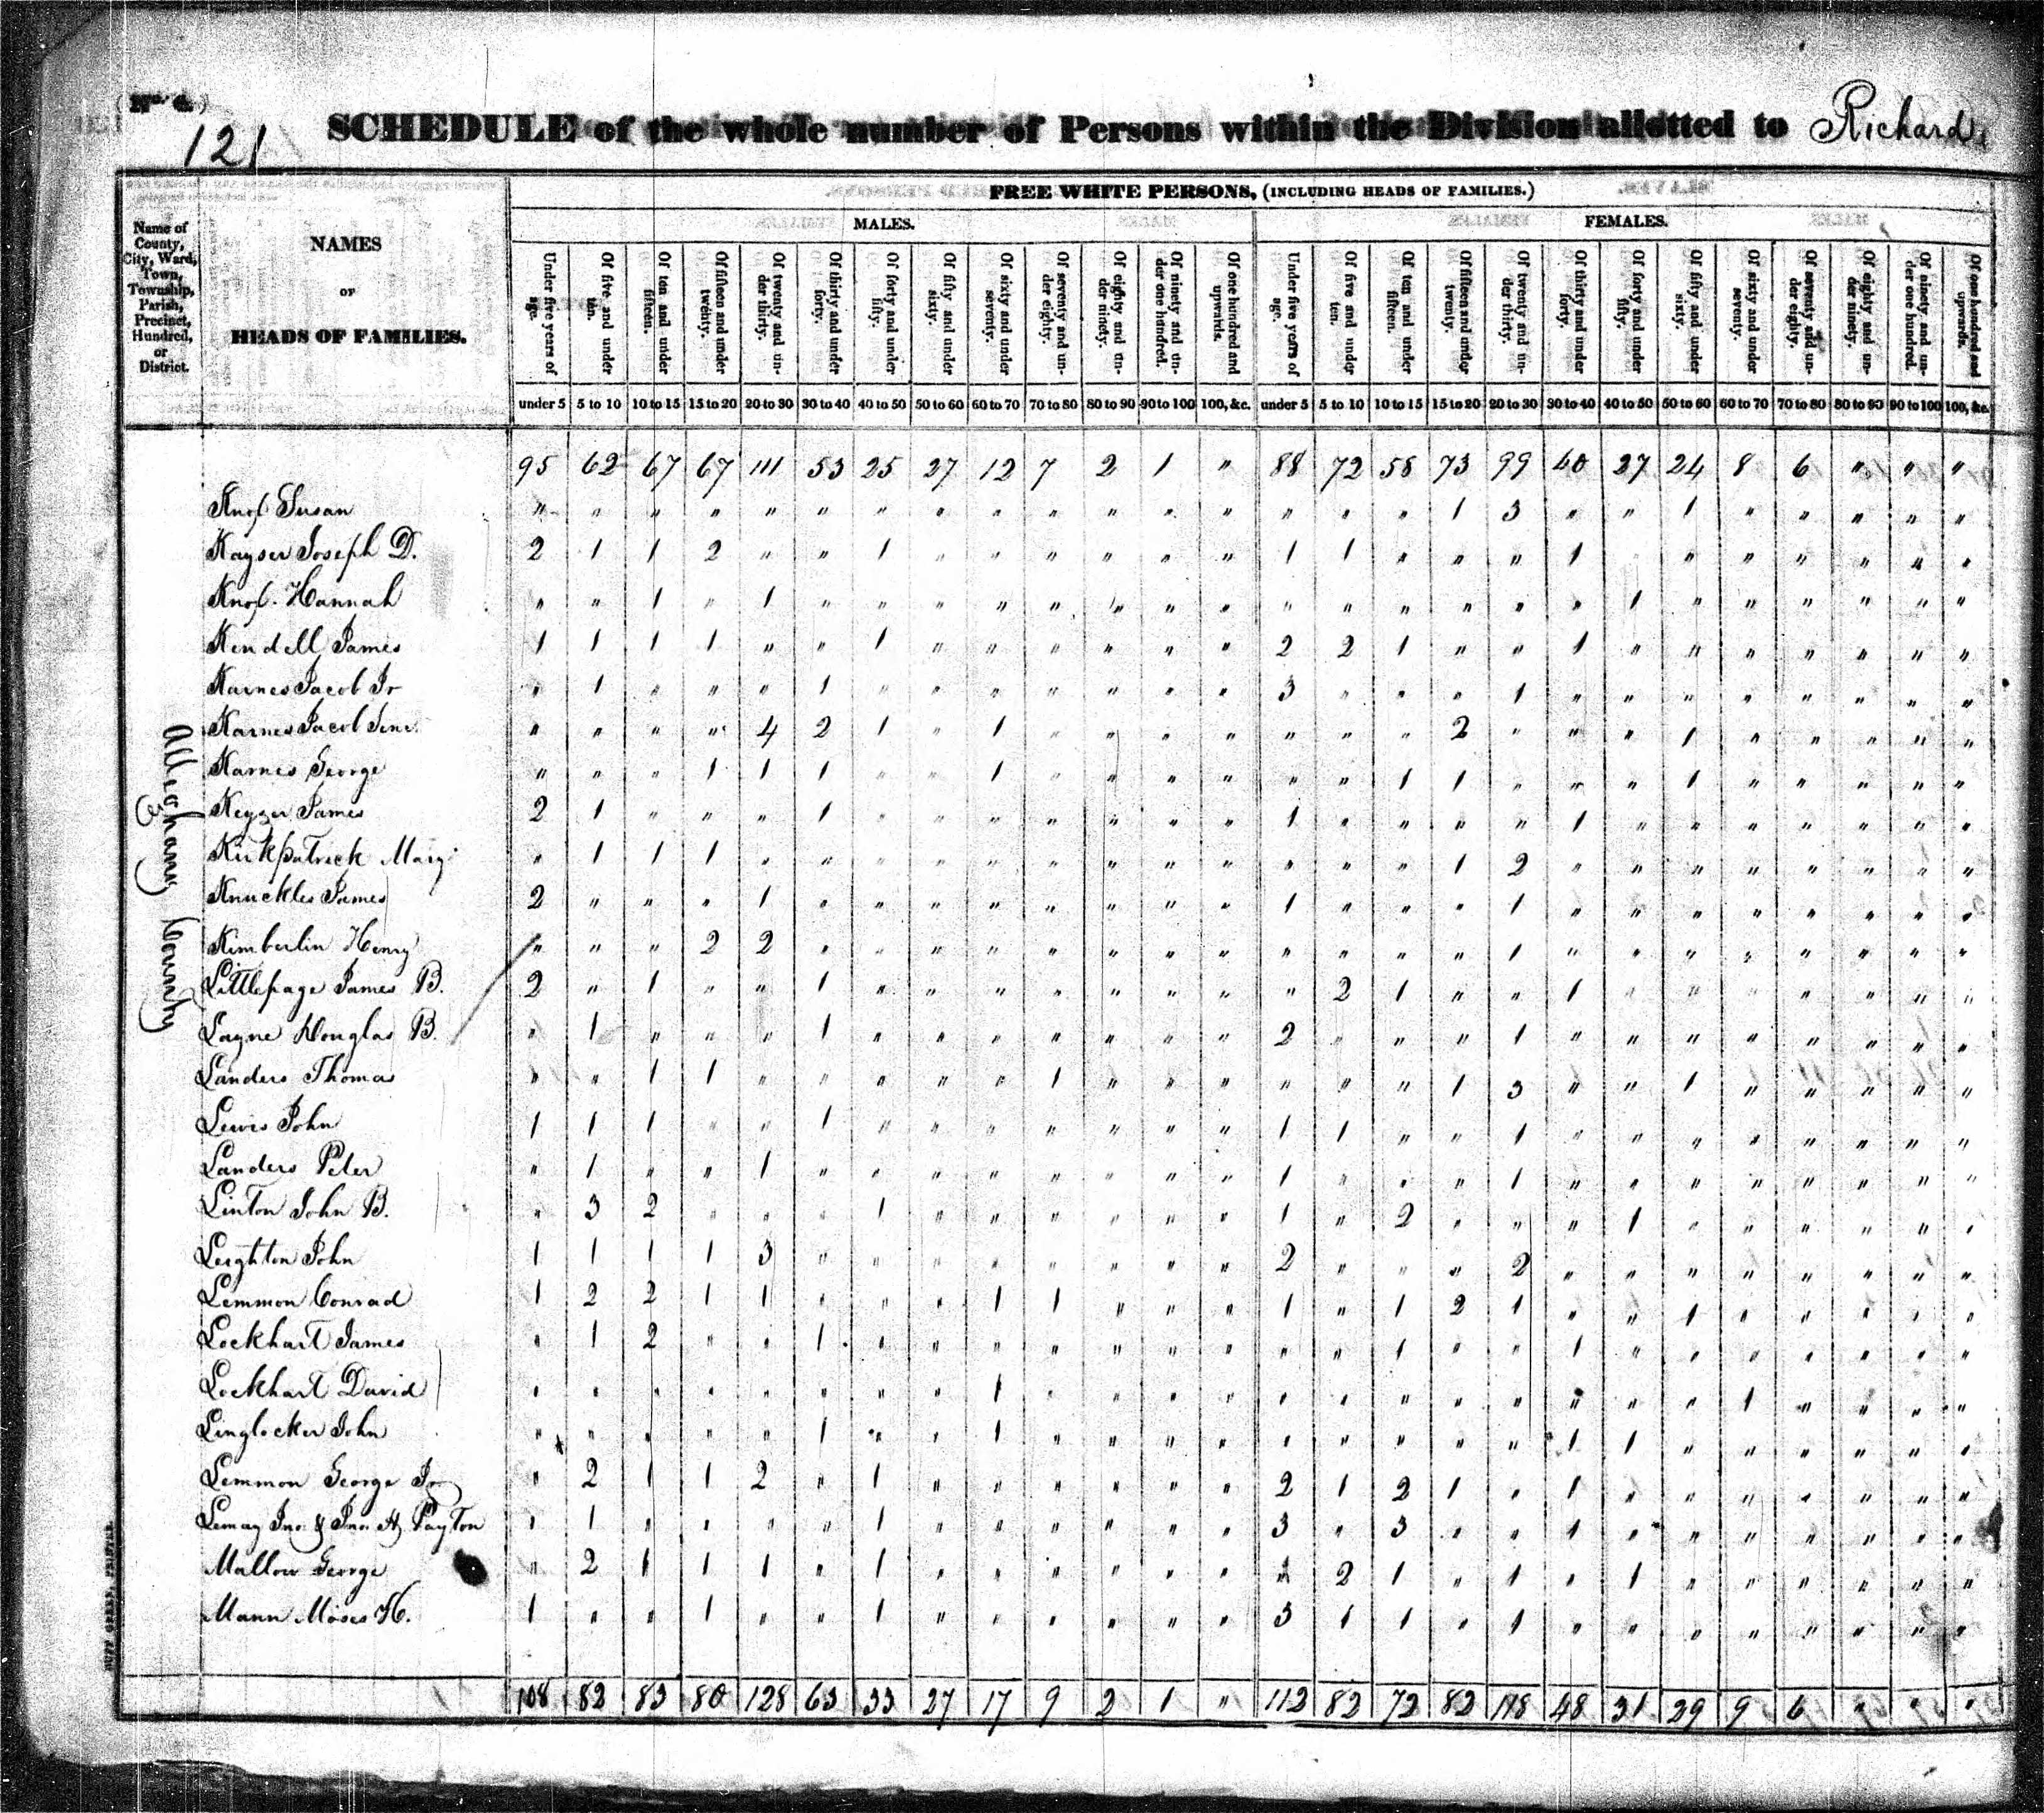 (No. 6.)
121
SCHEDULE of the whole number of Persons within the Division allotted to Richard
FREE WHITE PERSONS, (INCLUDING HEADS OF FAMILIES.)
MALES. FEMALES.
Name of County, City, Ward, Town, Township, Parish, Precinct, Hundred, or District.
NAMES
OF
HEADS OF FAMILIES.
Under five years of age. Of five and under ten. Of ten and under fifteen. Of fifteen and under twenty. Of twenty and under thirty. Of thirty and under forty. Of forty and under fifty. Of fifty and under sixty. Of sixty and under seventy. Of seventy and under eighty. Of eighty and under ninety. Of ninety and under one hundred. Of one hundred and upwards. Under five years of age. Of five and under ten. Of ten and under fifteen. Of fifteen and under twenty. Of twenty and under thirty. Of thirty and under forty. Of forty and under fifty. Of fifty and under sixty. Of sixty and under seventy. Of seventy and under eighty. Of eighty and under ninety. Of ninety and under one hundred. Of one hundred and upwards.
under 5 5 to 10 10 to 15 15 to 20 20 to 30 30 to 40 40 to 50 50 to 60 60 to 70 70 to 80 80 to 90 90 to 100 100, &c. under 5 5 to 10 10 to 15 15 to 20 20 to 30 30 to 40 40 to 50 50 to 60 60 to 70 70 to 80 80 to 90 90 to 100 100, &c.
95 62 67 67 111 53 25 27 12 7 2 1 " 88 72 58 73 99 40 27 24 8 6 " " "
Alleghany County
Knof Susan " " " " " " " " " " " " " " " " 1 3 " " 1 " " " " "
Kayser Joseph D. 2 1 1 2 " " 1 " " " " " " 1 1 " " " 1 " " " " " " "
Knof Hannah " " 1 " 1 " " " " " " " " " " " " " " 1 " " " " " "
Kendell James 1 1 1 1 " " 1 " " " " " " 2 2 1 " " 1 " " " " " " "
Karnes Jacob Jr " 1 " " " 1 " " " " " " " 3 " " " 1 " " " " " " " "
Karnes Jacob Senr. " " " " 4 2 1 " 1 " " " " " " " 2 " " " 1 " " " " "
Karnes George " " " 1 1 1 " " 1 " " " " " " 1 1 " " " 1 " " " " "
Keyzer James 2 1 " " " 1 " " " " " " " 1 " " " " 1 " " " " " " "
Kirkpatrick Mary " 1 1 1 " " " " " " " " " " " " 1 2 " " " " " " " "
Knuckles James 2 " " " 1 " " " " " " " " 1 " " " 1 " " " " " " " "
Kimberlin Henry " " " 2 2 " " " " " " " " " " " " 1 " " " " " " " "
Littlepage James B. 2 " 1 " " 1 " " " " " " " " 2 1 " " 1 " " " " " " "
Layne Douglas B. " 1 " " " 1 " " " " " " " 2 " " " 1 " " " " " " " "
Landers Thomas " " 1 1 " " " " " 1 " " " " " " 1 3 " " 1 " " " " "
Lewis John 1 1 1 " " 1 " " " " " " " 1 1 " " 1 " " " " " " " "
Landers Peter " 1 " " 1 " " " " " " " " 1 " " " 1 " " " " " " " "
Linton John B. " 3 2 " " " 1 " " " " " " 1 " 2 " " " 1 " " " " " "
Leighton John 1 1 1 1 3 " " " " " " " " 2 " " " 2 " " " " " " " "
Lemmon Conrad 1 2 2 1 1 " " " 1 1 " " " 1 " 1 2 1 " " 1 " " " " "
Lockhart James " 1 2 " " 1 " " " " " " " " " 1 " " 1 " " " " " " "
Lockhart David " " " " " " " " 1 " " " " " " " " " " " " 1 " " " "
Linglocker John " " " " " 1 " " 1 " " " " " " " " " 1 1 " " " " " "
Lemmon George Jr " 2 1 1 2 " 1 " " " " " " 2 1 2 1 " 1 " " " " " " "
Lemay Jno. & Jno. H. Payton " 1 " " " " 1 " " " " " " 3 " 3 " " 1 " " " " " " "
Mallow George " 2 1 1 1 " 1 " " " " " " 2 1 " 1 " 1 " " " " " "
Mann Moses H. 1 " " 1 " " 1 " " " " " " 3 1 1 " 1 " " " " " " " "
108 82 83 80 128 63 33 27 17 9 2 1 " 112 82 72 82 118 48 31 29 9 6 " " "
DUFF GREEN, PRINTER.